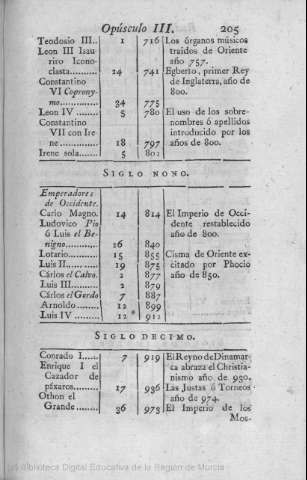 Opúsculo III. 205
Teodosio III.. 1 716 Los órganos músicos
Leon III Isau- traídos de Oriente
riro Icono- año 757.
clasta......... 24 741 Egberto, primer Rey
Constantino de Inglaterra, año de
VI Coprony- 800.
mo............. 34 775
Leon IV ...... 5 780 El uso de los sobre-
Constantino nombres ó apellidos
VII con Ire- introducido por los
ne............. 18 797 años de 800.
Irene sola...... 5 802
SIGLO NONO.
Emperadores
de Occidente.
Carlo Magno. 14 814 El Imperio de Occi-
Ludovico Pio dente restablecido
ó Luis el Be- año de 800.
nigno.......... 26 840
Lotario......... 15 855 Cisma de Oriente ex-
Luis II......... 19 875 citado por Phocio
Cárlos el Calvo. 2 877 año de 850.
Luis III........ 2 879
Cárlos el Gordo 7 887
Arnoldo........ 12 899
Luis IV........ 12 912
SIGLO DECIMO.
Conrado I..... 7 919 El Reyno de Dinamar-
Enrique I el ca abraza el Christia-
Cazador de nismo año de 930.
páxaros........ 17 936 Las Justas ó Torneos
Othon el año de 974.
Grande........ 36 973 El Imperio de los
Mos-
(c) Biblioteca Digital Educativa de la Región de Murcia